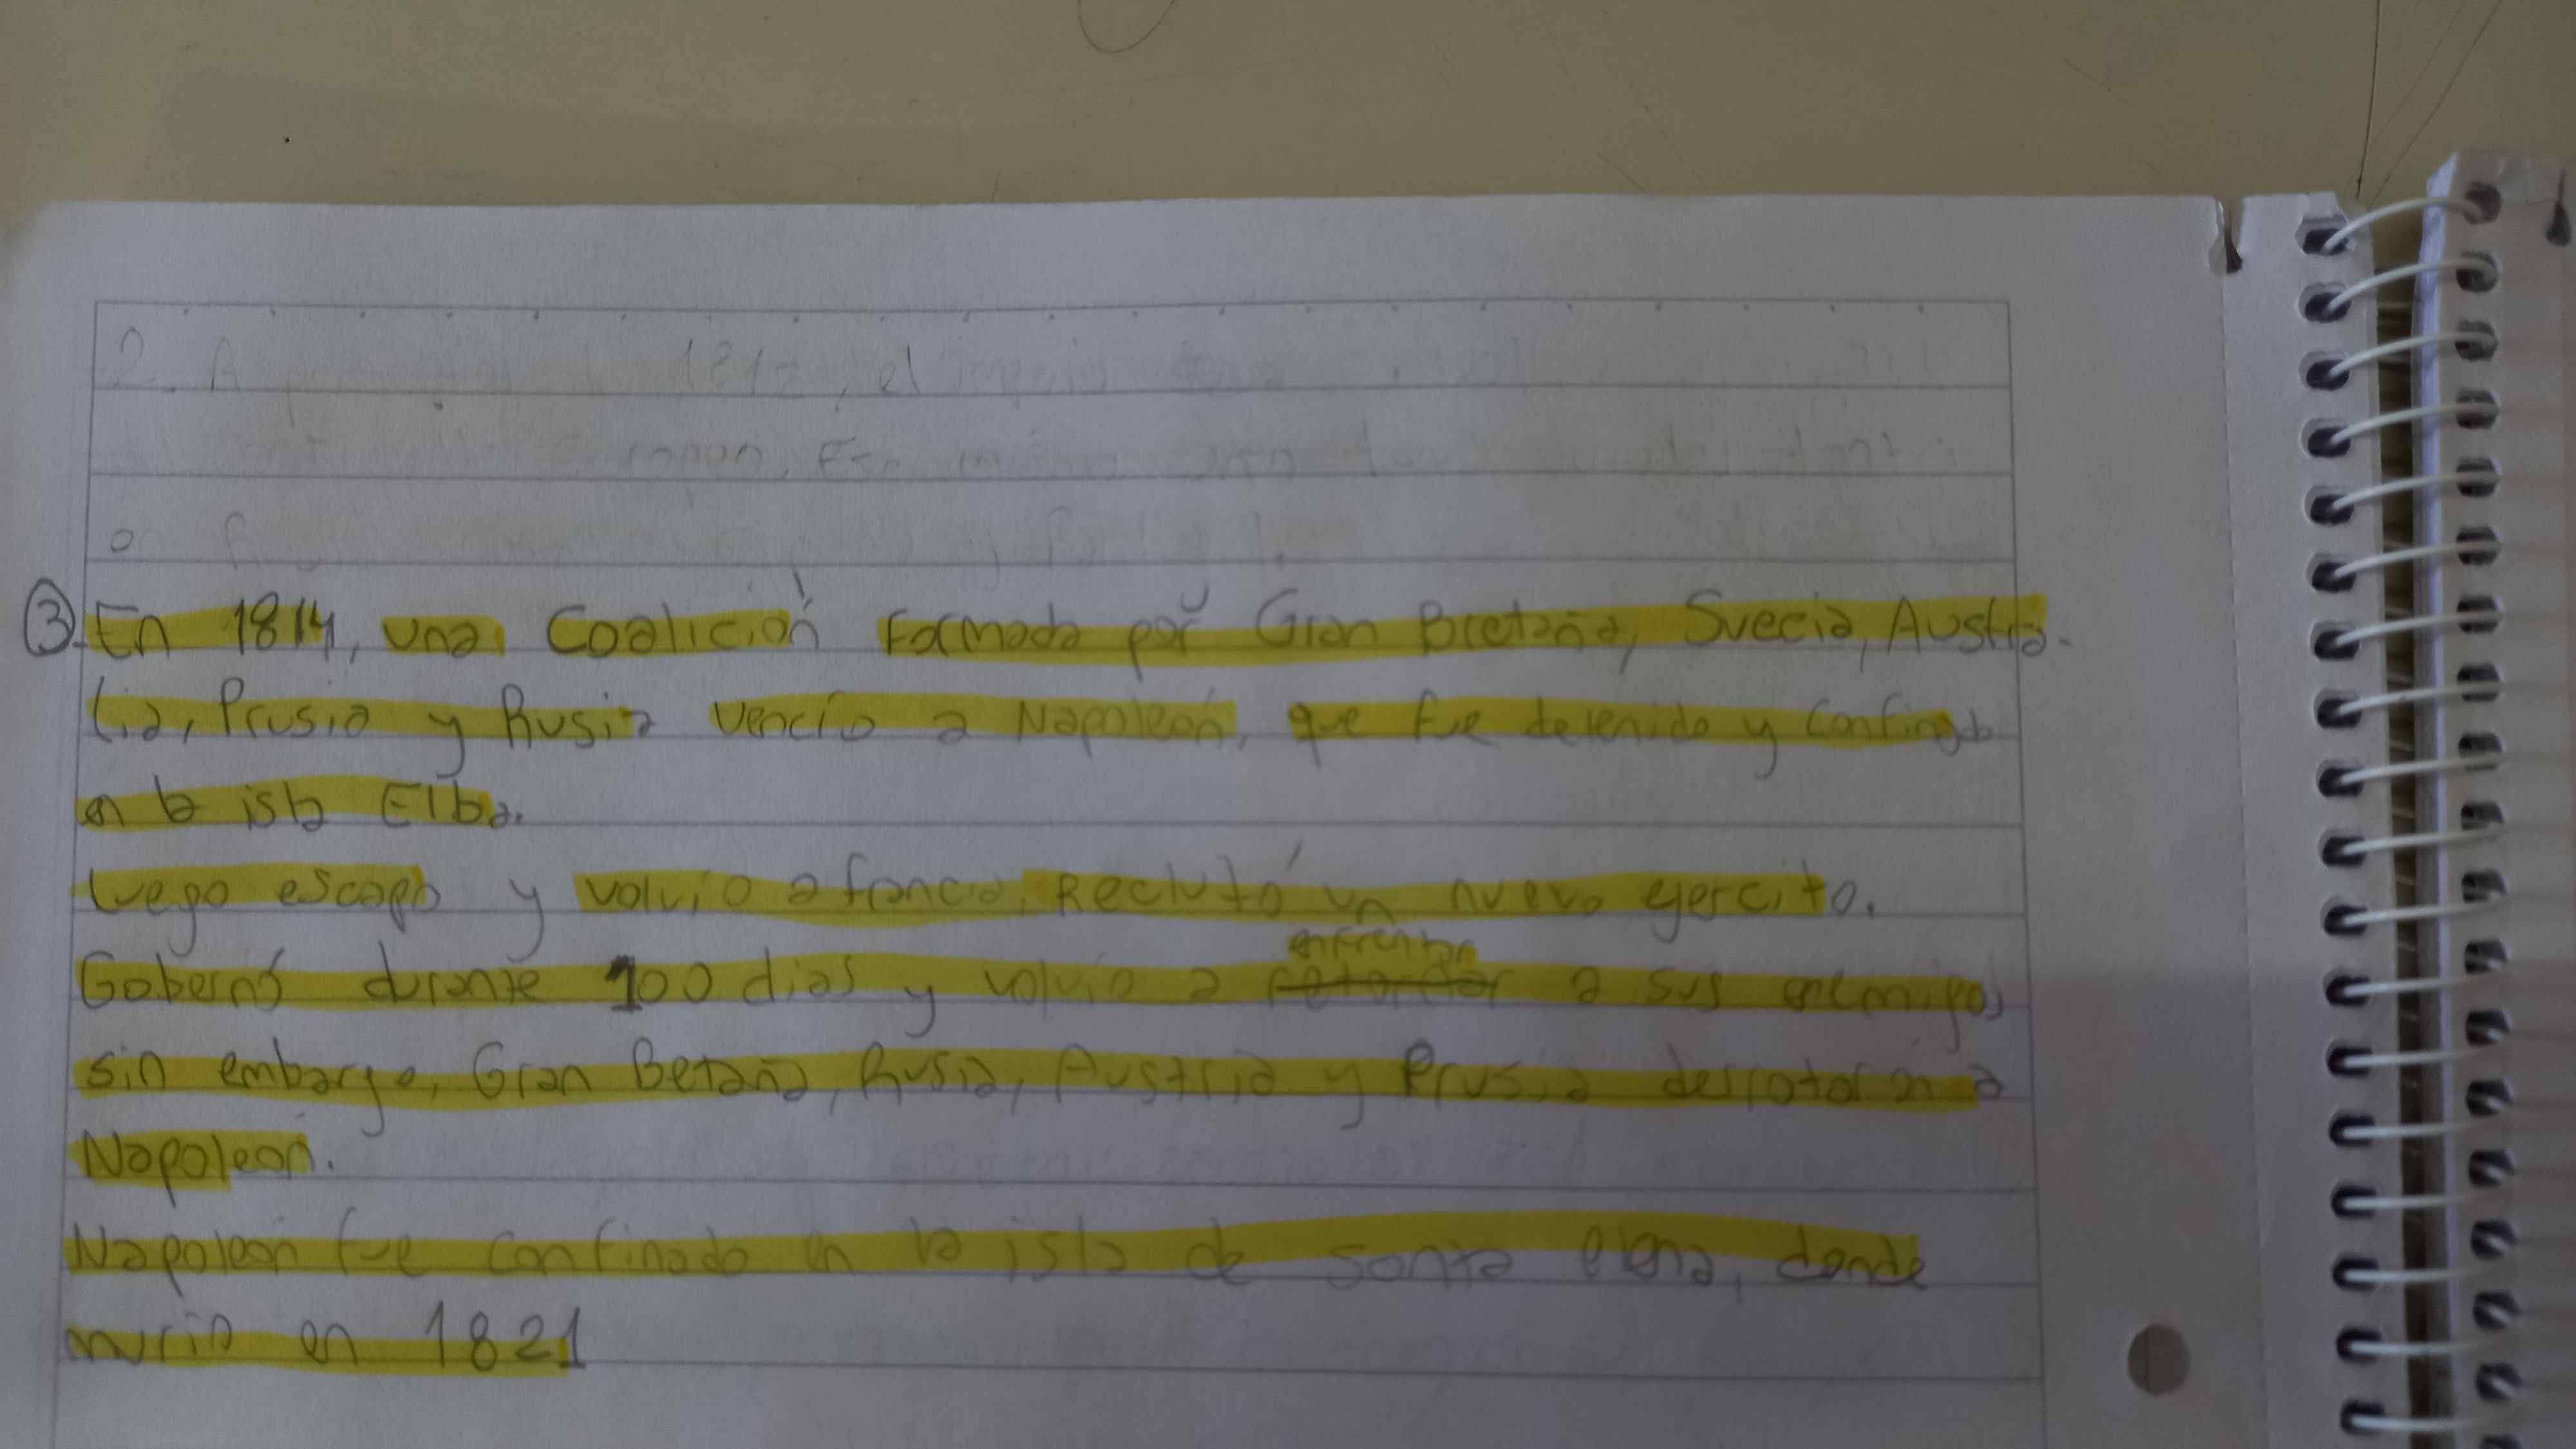 2. A 1812, el
③. En 1814, una Coalición Formada por Gran Bretaña, Suecia, Austra-
lia, Prusia y Rusia Vencio a Napoleón, que fue detenido y Confinado
en la isla Elba.
luego escapo y volvio a francia, Reclutó un nuevo ejercito.
enfrentar
Gobernó durante 100 dias y volvio a a sus enemigos
sin embargo, Gran Betaña, Rusia, Austria y Prusia derrotaron a
Napoleon.
Napoleon fue confinado en la isla de santa elena, donde
murio en 1821